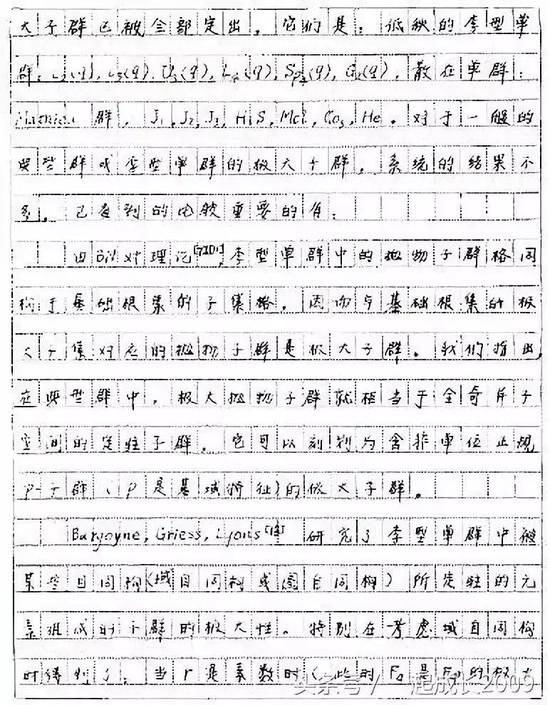 大子群已被全部定出。它们是:低秩的李型单
群:L₂(q), L₃(q), U₃(q), L₄(q), Sp₄(q), G₂(q),散在单群:
Mathieu 群, J₁, J₂, J₃, HiS, Mcl, Co₃, He。对于一般的
典型群或李型单群的极大子群,系统的结果不
多。已看到的比较重要的有:
由 BN 对理论,李型单群中的抛物子群格同
构于基础根集的子集格,因而与基础根集的极
大子集对应的抛物子群是极大子群。我们指出,
在典型群中,极大抛物子群就相当于全奇异子
空间的定驻子群。它可以刻划为含非单位正规
p-子群(p是基域特征)的极大子群。
Burgoyne, Griess, Lyons 研究了李型单群中被
某些自同构(域自同构或图自同构)所定驻的元
素组成的子群的极大性。特别在考虑域自同构
时得到了,当r是素数时(此时 F 是 F 的极大
头条号/一起成长2009